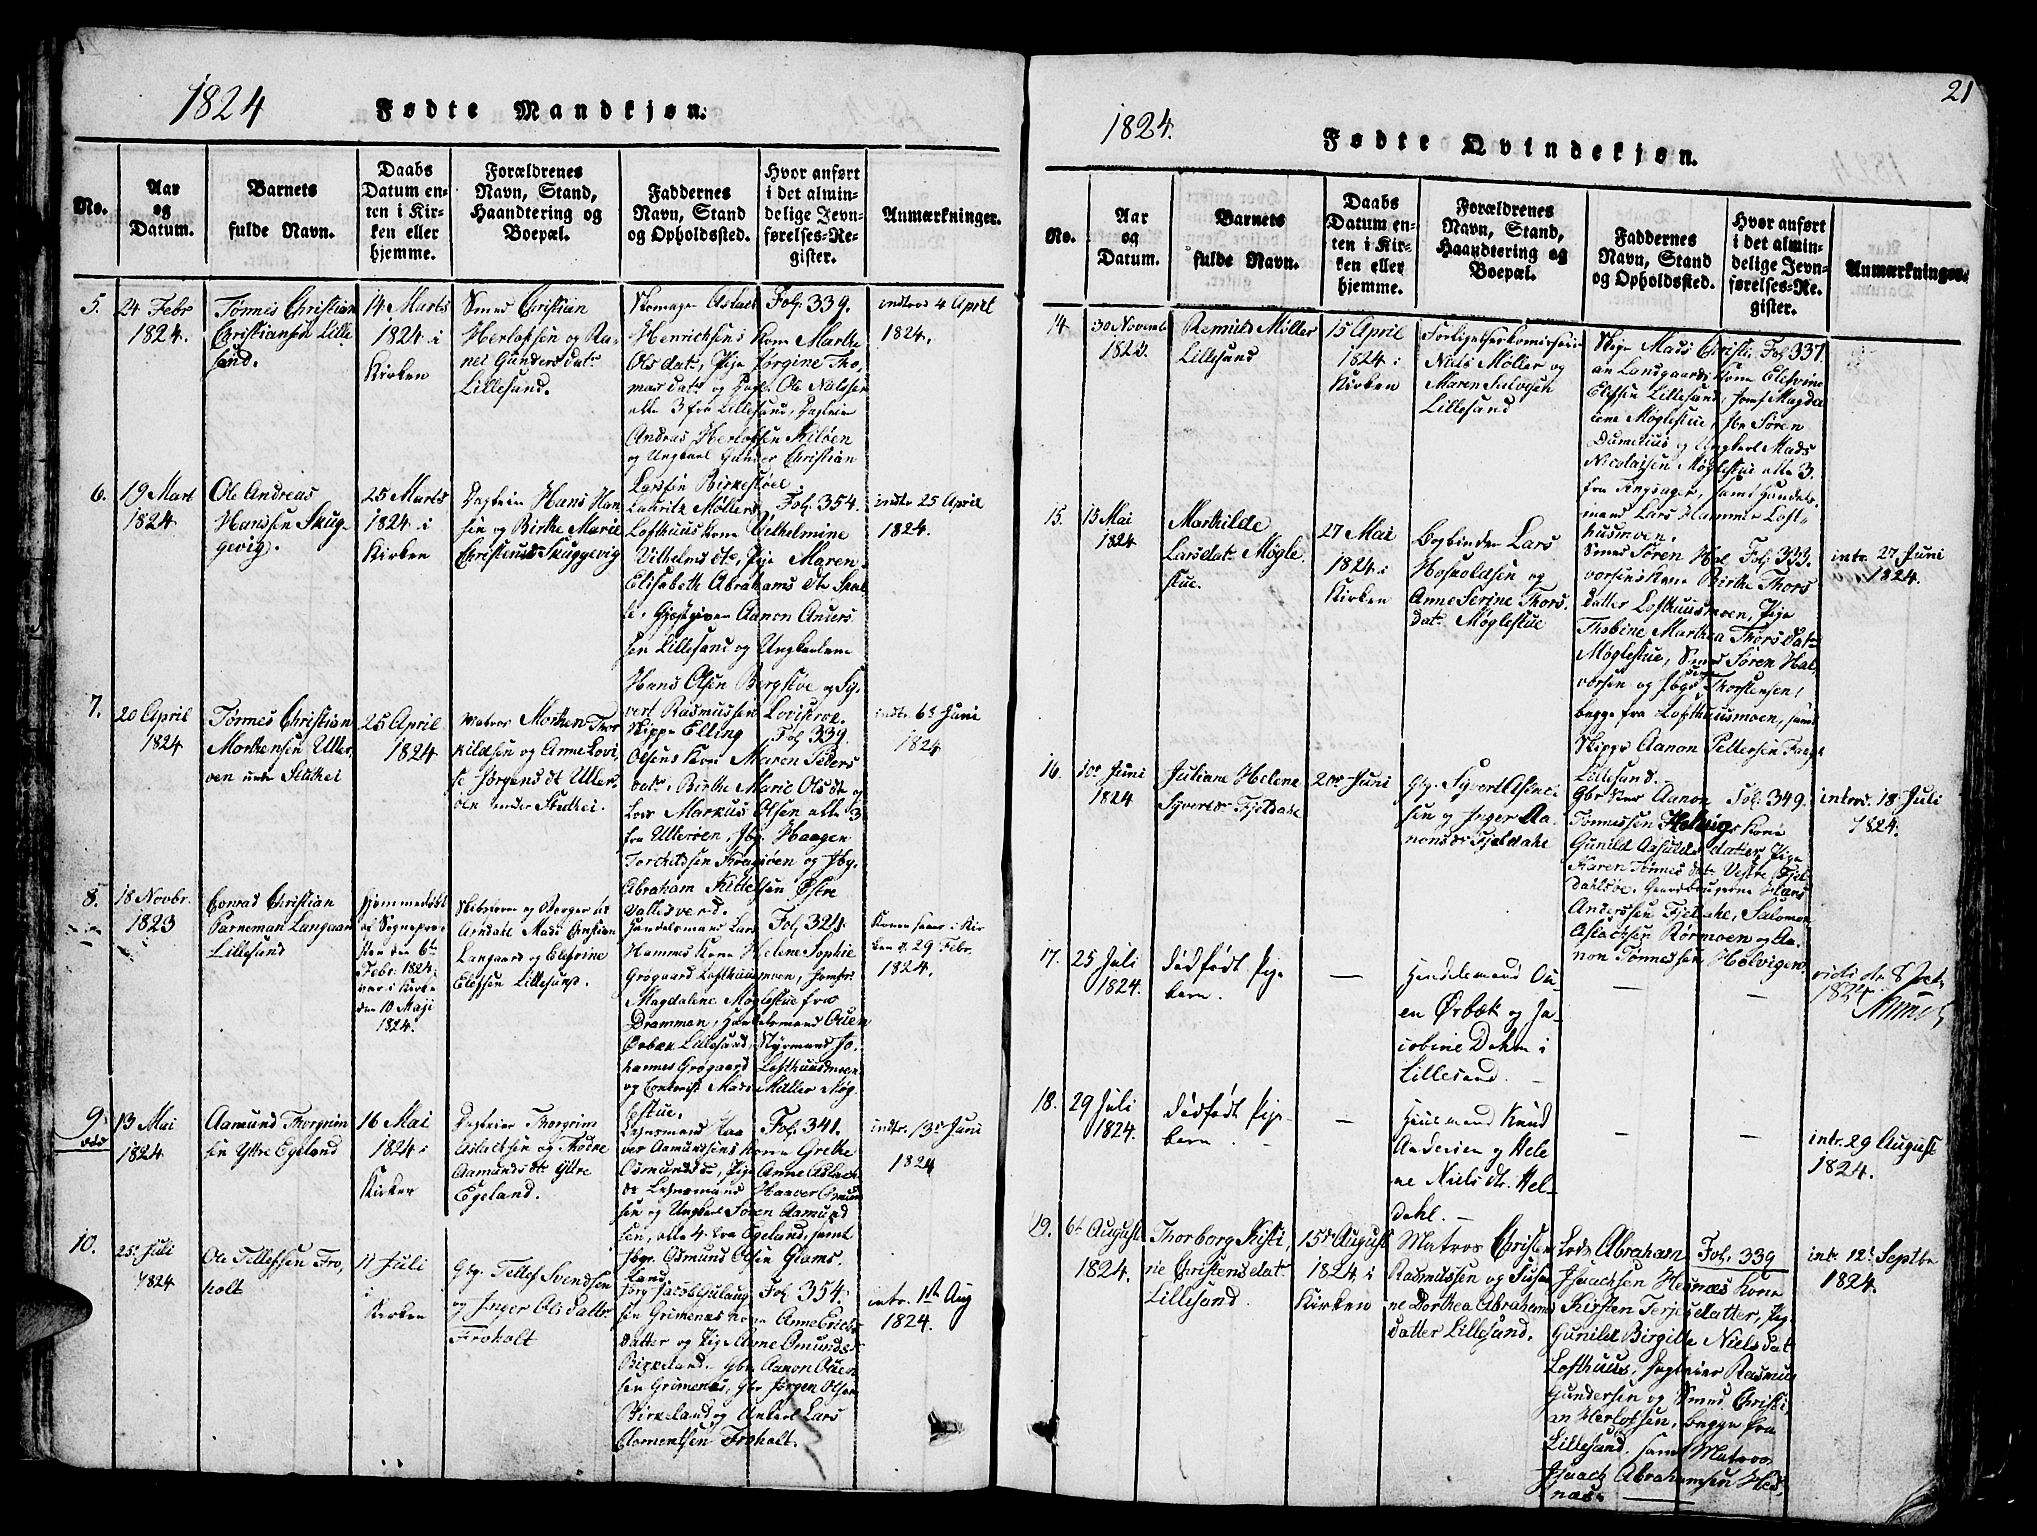 1824
Fødte Mandkjøn.
No.
Aar
og
Datum.
Barnets
fulde Navn.
Daabs
Datum en-
ten i Kir-
ken eller
hjemme.
Forældrenes
Navn, Stand,
Haandtering og
Boepæl.
Faddernes
Navn, Stand
og Opholdssted.
Hvor anført
i det almin-
delige Jevn-
førelses-Re-
gister.
Anmærkninger.
5.
24 Febr
1824.
Tønnes Christian
Christiansen Lille
sand.
14 Marts
1824 i
Kirken
Smed Christian
Herlofsen og
Gundersdatr
Lillesand.
Henrichsens Kone Marthe
Olsdatr, Pige Jørgine Tho,
masdatr og Ole Nielsen
alle 3 fra Lillesand,
Andreas Herlofsen
og Ungkarl Gunder Christian
Larssen Birkestøel
Fol. 339.
indtrod 4 April
1824.
6.
19 Mart
1824
Ole Andreas
Hanssen Skug
gevig.
25 Marts
1824 i
Kirken
Hans Han
sen og Birthe Marie
Christiansd Skuggevig
Lauritz Møllers
Lofthuus Kone Vilhelmine
Vilhelmsdtr, Pige Maren
Elisabeth Abrahamsdtr
Aanon Anders
sen Lillesand og Ungkarlene
Hans Olsen Bergstøe og Sy
vert Rasmussen
Fol. 354.
indtr 25 April
1824.
7.
20 April
1824
Tønnes Christian
Morthensen Utter,
øen
25 April
1824
Matros Morthen Thor
kildsen og Anne Lovi
se Jørgensdt Utter
øen
Elling
Olsens Kone Maren Peders
datr, Birthe Marie Olsdtr og
Markus Olsen alle 3
fra Utterøen, Haagen
Torchildsen Kragøen og
Abraham Kittelsen Østre
Vallesverd.
Fol. 339.
indtr 6te Juni
1824
8.
18 Novbr.
1823
Conrad Christian
Langaard
Lillesand
Hjemmedøbt
af Sognepre-
sten den 6te
Febr. 1824.
var i Kirke
den 10 Maji
1824.
Arendahl Mads Christian
Langaard og Elefrine
Elefsen Lillesand.
Handelsmand Lars
Hammers Kone Helene Sophie
Grøgaard Lofthuusmoen, Jomfru
Magdalene Møglestue fra
Drammen, Handelsmand Ouen
Ørbæk Lillesand, Styrmand Jo,
hannes Grøgaard Lofthuusmoen
og Mads Møller Møg
lestue.
Fol. 324.
Konen i Kir
ken d. 29 Febr.
1824.
9.
13 Mai
1824
Aamund Thorgrim
sen Yttre Egeland
16 Mai
1824 i
Kirken
Thorgrim
Aslachsen og
Aamundsdtr Yttre
Egeland.
Lensmand Haa
ver Aamundsens Kone Grethe
Osmundsdtr, Pige Anne Aslachs
dtr Lensmand Haaver Osmund
sen og Ungkarl Søren Aamund
sen, alle 4 fra Egeland, samt
Osmund Olsen Glams
land
Fol. 341.
indtr. 13de Juni
1824
10.
25. Juli
1824
Ole Tellefsen Fro,
holt
11 Juli
i
Kirken
Gbr. Tellef Svendsen
og Inger Olsdatter
Froholt
sen Grimenæs Kone Anne Erichs
datter og Pige Anne Omunds
Birkeland. Gbr. Aanon Ouen
sen Grimenæs, Gbr Jørgen Olsen
Birkeland og Unkarl Lars
Clementsen Froholt.
Fol. 354.
intr. 1st Aug
1824.
21
1824.
Fødte Qvindekjøn.
No.
Aar
og
Datum.
Barnets
fulde Navn.
Daabs
Datum en-
ten i Kir-
ken eller
hjemme.
Forældrenes
Navn, Stand,
Haandtering og
Boepæl.
Faddernes
Navn, Stand
og Opholdssted.
Hvor anført
i det almin-
delige Jevn-
førelses-Re-
gister.
Anmærkninger.
14
30 Novemb
1823.
Møller
Lillesand
15 April
1824 i
Kirken
Niels Møller og
Maren
Lillesand
Mads Christi
an Landgaards Kone Elefrine
Elefsen Lillesand, Jomf Magda
lene Møglestue, Hr. Søren
og Ungkarl Mads
Nicolaisen Møglestue alle 3.
fra Tingsager, samt Handels
mand Lars Hammer Loft-
husmoen.
Fol. 337.
15.
13 Mai
1824
Mathilde
Larsdatr Møgle
stue.
27 Mai
1824 i
Kirken
Bogbinder Lars
Hoskoldsen og
Anne Serine Thors
datr Møglestue
Smed Søren Hal
vorsens Kone Birthe Thors
datter Lofthuusmoen, Pige
Thobine Marthea Thorsdatr
Møglestue, Smed Søren Hal
vorsen og Thorstensen
begge fra Lofthuusmoen, samt
Aanon Pettersen
Lillesand.
Fol. 333.
intr. 27 Juni
1824.
16.
10de Juni
1824
Juliane Helene
Syvertsdr Fjeldahl
20de Juni
Gbr. Syvert
sen og Inger Aa
nonsdr Fjeldahl
Aanon
Tønnessen Helvigs Kone
Gunild Asfuldsdatter, Pige
Karen Tønnesdatr Vestre Fjel
dahlsøe. Gaardbrugerne Hans
Anderssen Fjeldahl, Salomon
Aslachsen Rørmoen og Aa,
non Tønnessen Holvigen.
Fol. 349.
introd. 18. Juli
1824.
17.
25 Juli
1824.
Dødfødt Pige
barn.
—
Handelsmand Ou
en Ørbek og Ja-
cobine Dahm i
Lillesand.
—
—
1824.
18.
29 Juli
1824.
Dødfødt Pige
barn.
—
Huusmand Knud
Andersen og Hele
ne Nielsdtr. Hel-
dahl.
—
—
intr. 29 August
1824.
19.
6te August
1824.
Thorborg Kisti
ne Christensdat.
Lillesand.
15de August
1824 i
Kirken
Matros Christen
Rasmussen og Susan
ne Dorthea Abrahams
datter Lillesand.
Lods Abraham
Isaachsen Hesnæs Kone
Kirsten Terjesdatter, Pig.
Gunild Birgitte Nielsdat
Lofthuus, Rasmus
Gundersen og Smed Christi
an Herlofsen, begge fra
Lillesand. samt Matros
Isaach Abrahamsen Hes
næs.
Fol. 339
intr. 12te Septbr
1824.